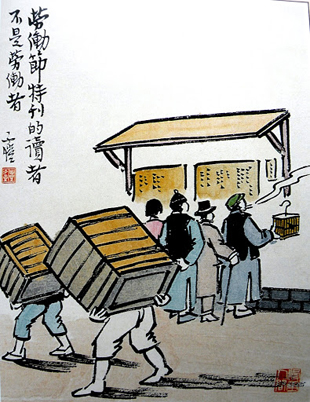 勞働節特刊的讀者
不是勞働者
子愷